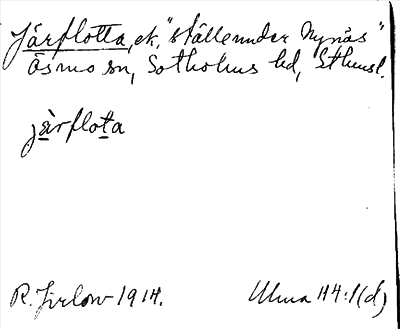 Järflotta, ek. "ställe under Nynäs"
Ösmo sn, Sotholms hd, Sthmsl.
jä̀rflota
R. Jirlow 1914.
Ulma 114:1(d)